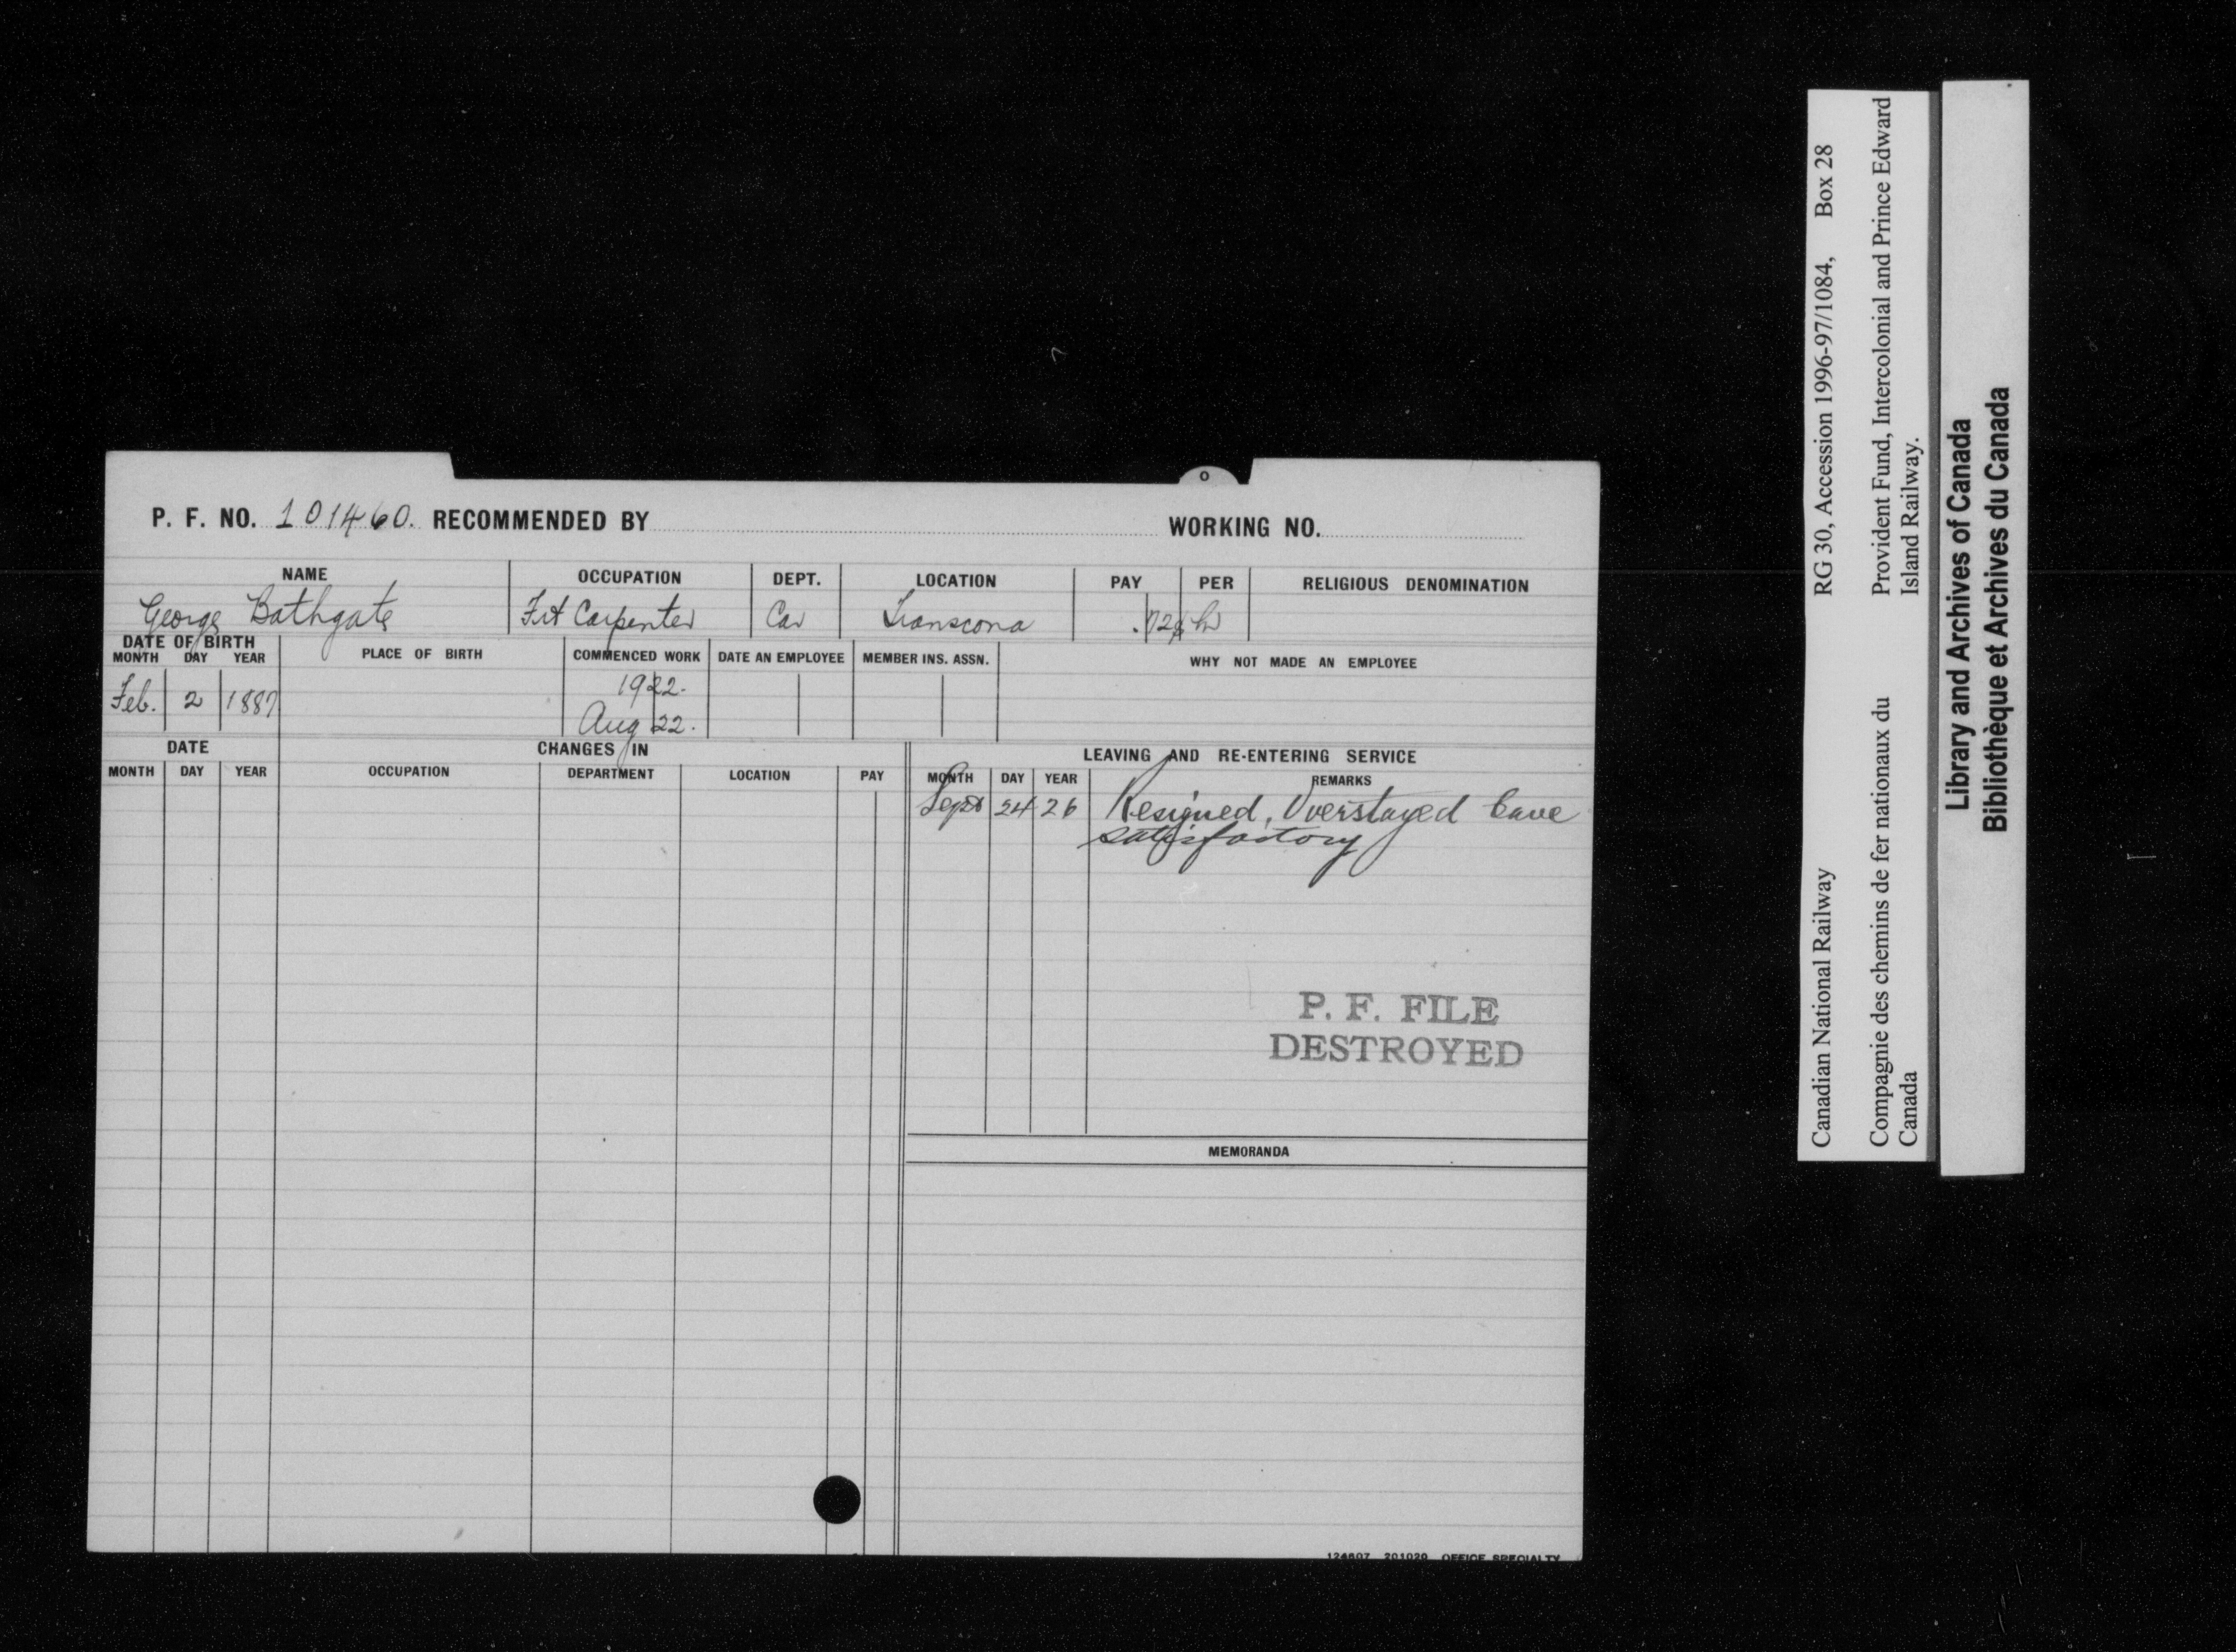 P. F. NO. 101460. RECOMMENDED BY WORKING NO.
NAME OCCUPATION DEPT. LOCATION PAY PER RELIGIOUS DENOMINATION
George Bathgate Frt Carpenter Car Transcona .72¢ hr
DATE OF BIRTH
MONTH DAY YEAR PLACE OF BIRTH COMMENCED WORK DATE AN EMPLOYEE MEMBER INS. ASSN. WHY NOT MADE AN EMPLOYEE
1922.
Feb. 2 1887
Aug 22.
DATE CHANGES IN LEAVING AND RE-ENTERING SERVICE
MONTH DAY YEAR OCCUPATION DEPARTMENT LOCATION PAY MONTH DAY YEAR REMARKS
Sept 24 26 Resigned, Overstayed leave
satisfactory
P. F. FILE
DESTROYED
MEMORANDA
124607 201020 OFFICE SPECIALTY
Canadian National Railway RG 30, Accession 1996-97/1084, Box 28
Compagnie des chemins de fer nationaux du Provident Fund, Intercolonial and Prince Edward
Canada Island Railway.
Library and Archives of Canada
Bibliothèque et Archives du Canada